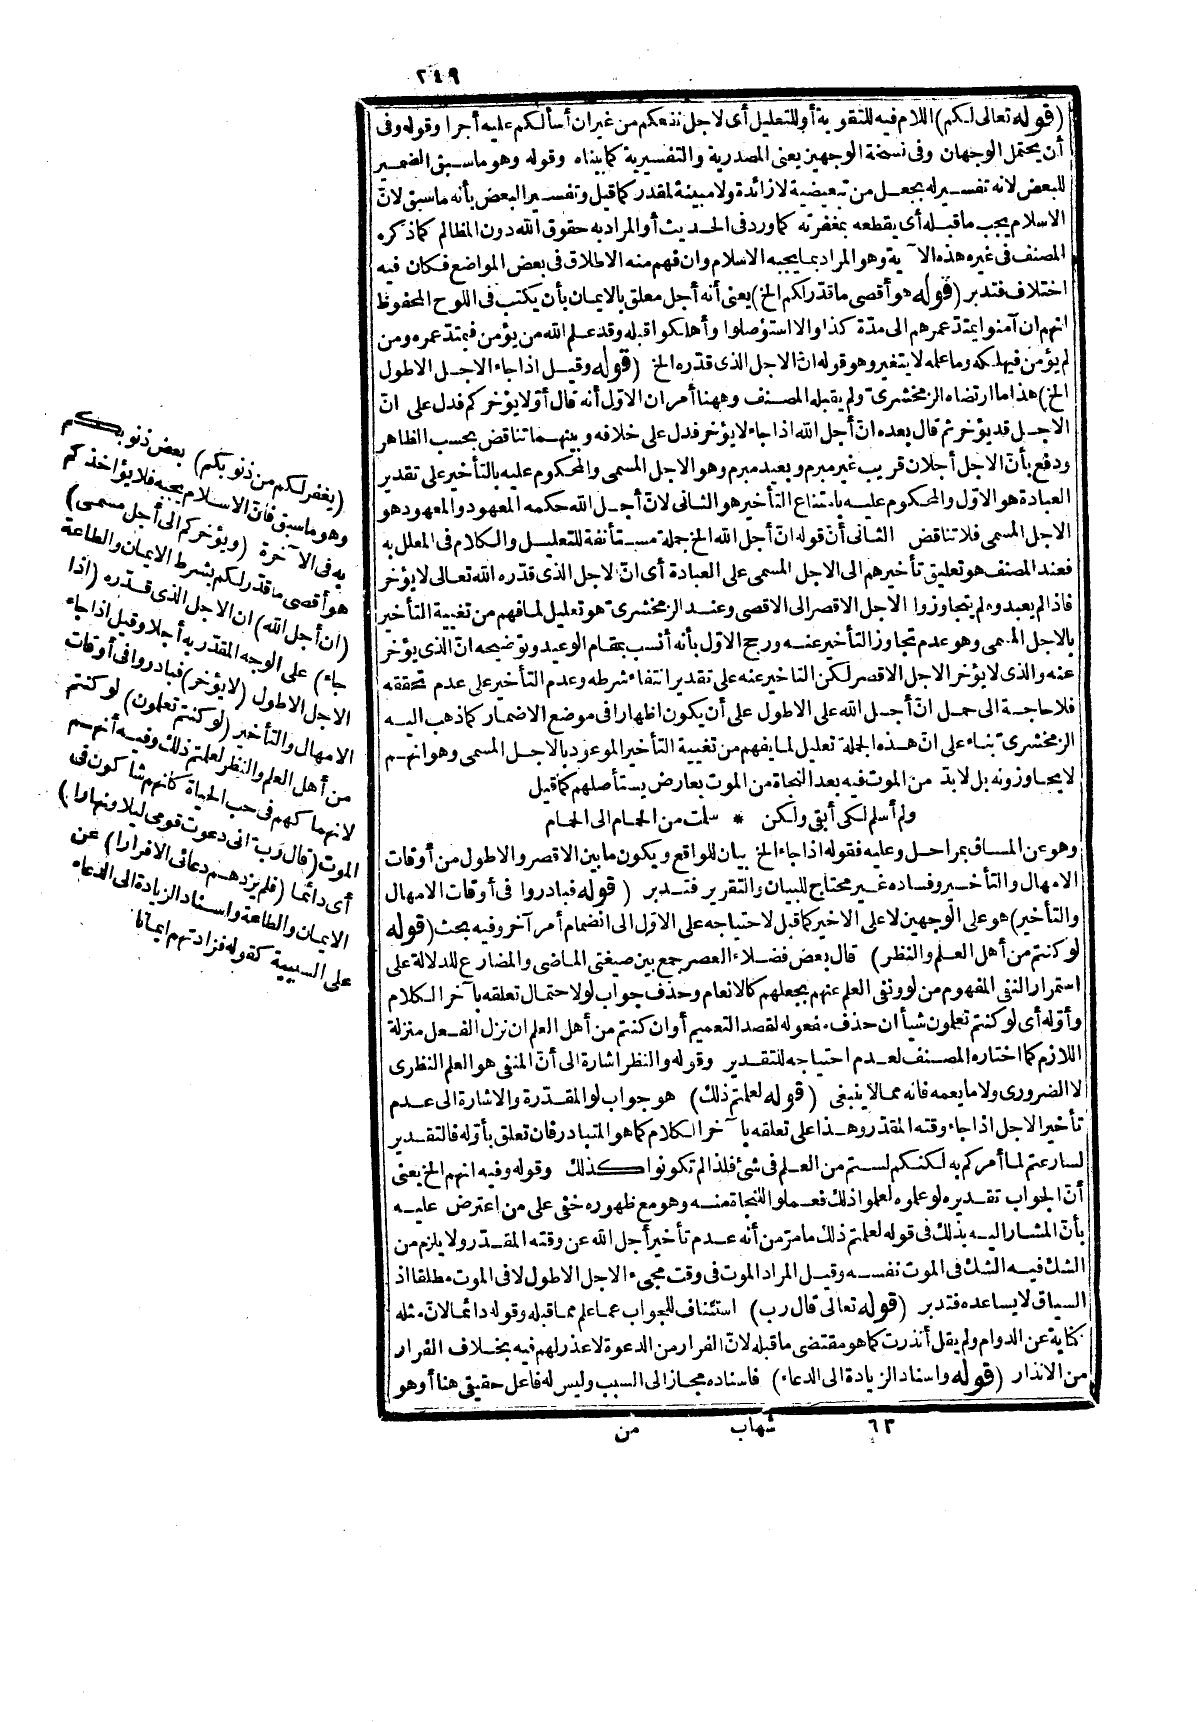 ٢٤٩
(قوله تعالى لكم) اللام فيه للتقوية أو للتعليل أى لاجل نفعكم من غير ان أسألكم عليه أجرا وقوله وفى
أن يحتمل الوجهان وفى نسخة الوجهين يعنى المصدرية والتفسيرية كما بيناه وقوله وهو ما سبق الضمير
للبعض لانه تفسير له بجعل من تبعيضية لا زائدة ولا مبينة لمقدر كما قيل وتفسير البعض بأنه ما سبق لانّ
الاسلام يجب ما قبله أى يقطعه بمغفرته كما ورد فى الحديث أو المراد به حقوق الله دون المظالم كما ذكره
المصنف فى غير هذه الآية وهو المراد بما يجبه الاسلام وان فهم منه الاطلاق فى بعض المواضع فكان فيه
اختلاف فتدبر (قوله هو أقصى ما قدر لكم الخ) يعنى أنه أجل معلق بالايمان بأن يكتب فى اللوح المحفوظ
انهم ان آمنوا يمتد عمرهم الى مدّة كذا والا استؤصلوا وأهلكوا قبله وقد علم الله من يؤمن فيمتدّ عمره ومن
لم يؤمن فيهلكه وما علمه لا يتغير وهو قوله انّ الاجل الذى قدّره الخ (قوله وقيل اذا جاء الاجل الاطول
الخ) هذا ما ارتضاه الزمخشرىّ ولم يقبله المصنف وههنا أمر ان الاوّل أنه قال أوّلا يؤخركم فدل على انّ
الاجل قد يؤخر ثم قال بعده انّ أجل الله اذا جاء لا يؤخر فدل على خلافه وبينهما تناقض بحسب الظاهر
ودفع بأنّ الاجل أجلان قريب غير مبرم وبعيد مبرم وهو الاجل المسمى والمحكوم عليه بالتأخير على تقدير
العبادة هو الاوّل والمحكوم عليه بامتناع التأخير هو الثانى لانّ أجل الله حكمه المعهود والمعهود هو
الاجل المسمى فلا تناقض الثانى أنّ قوله انّ أجل الله الخ جملة مستأنفة للتعليل والكلام فى المعلل به
فعند المصنف هو تعليق تأخيرهم الى الاجل المسمى على العبادة أى انّ الاجل الذى قدّره الله تعالى لا يؤخر
فاذا لم يعبدوه لم يتجاوزوا الاجل الاقصر الى الاقصى وعند الزمخشرىّ هو تعليل لما فهم من تغيية التأخير
بالاجل المسمى وهو عدم تجاوز التأخير عنه ورجح الاوّل بأنه أنسب بمقام الوعيد وتوضيحه انّ الذى يؤخر
عنه والذى لا يؤخر الاجل الاقصر لكن التاخير عنه على تقدير انتفاء شرطه وعدم التأخير على عدم تحققه
فلا حاجة الى حمل انّ أجل الله على الاطول على أن يكون اظهارا فى موضع الاضمار كما ذهب اليه
الزمخشرىّ بناء على انّ هذه الجملة تعليل لما يفهم من تغيية التأخير الموعود بالاجل المسمى وهو انهم
لا يجاوزونه بل لابدّ من الموت فيه بعد النجاة من الموت بعارض يستأصلهم كما قيل
ولم أسلم لكى أبقى ولكن * سلمت من الحمام الى الحمام
وهو عن المساق بمراحل وعليه فقوله اذا جاء الخ بيان للواقع ويكون ما بين الاقصر والاطول من أوقات
الامهال والتأخير وفساده غير محتاج للبيان والتقرير فتدبر (قوله فبادروا فى أوقات الامهال
والتأخير) هو على الوجهين لا على الاخير كما قيل لاحتياجه على الاوّل الى انضمام أمر آخر وفيه بحث (قوله
لو كنتم من أهل العلم والنظر) قال بعض فضلاء العصر جمع بين صيغتى الماضى والمضارع للدلالة على
استمرار النفى المفهوم من لو ونفى العلم عنهم بجعلهم كالانعام وحذف جواب لو لاحتمال تعلقه بآخر الكلام
وأوّله أى لو كنتم تعلمون شيأ ان حذف مفعوله لقصد التعميم أو ان كنتم من أهل العلم ان نزل الفعل منزلة
اللازم كما اختاره المصنف لعدم احتياجه للتقدير وقوله والنظر اشارة الى أنّ المنفى هو العلم النظرى
لا الضرورى ولا ما يعمه فانه مما لا ينبغى (قوله لعلمتم ذلك) هو جواب لو المقدّرة والاشارة الى عدم
تأخير الاجل اذا جاء وقته المقدّر وهذا على تعلقه بآخر الكلام كما هو المتبادر فان تعلق بأوّله فالتقدير
لسارعتم لما أمركم به لكنكم لستم من العلم فى شئ فلذا لم تكونوا كذلك وقوله وفيه انهم الخ يعنى
أنّ الجواب تقديره لو علموه لعلموا ذلك فعملوا للنجاة منه وهو مع ظهوره خفى على من اعترض عليه
بأنّ المشار اليه بذلك فى قوله لعلمتم ذلك ما مرّ من أنه عدم تأخير أجل الله عن وقته المقدّر ولا يلزم من
الشك فيه الشك فى الموت نفسه وقيل المراد الموت فى وقت مجىء الاجل الاطول لا فى الموت مطلقا اذ
السياق لا يساعده فتدبر (قوله تعالى قال رب) استئناف للجواب عما علم مما قبله وقوله دائما لانّ مثله
كناية عن الدوام ولم يقل أنذرت كما هو مقتضى ما قبله لانّ الفرار من الدعوة لا عذر لهم فيه بخلاف الفرار
من الانذار (قوله واسناد الزيادة الى الدعاء) فاسناده مجاز الى السبب وليس له فاعل حقيقى هنا أو هو
(يغفر لكم من ذنوبكم) بعض ذنوبكم
وهو ما سبق فانّ الاسلام يجبه فلا يؤاخذكم
به فى الآخرة (ويؤخركم الى أجل مسمى)
هو أقصى ما قدّر لكم بشرط الايمان والطاعة
(ان أجل الله) ان الاجل الذى قدّره (اذا
جاء) على الوجه المقدّر به أجلا وقيل اذا جاء
الاجل الاطول (لا يؤخر) فبادروا فى أوقات
الامهال والتأخير (لو كنتم تعلمون) لو كنتم
من أهل العلم والنظر لعلمتم ذلك وفيه أنهم
لانهماكهم فى حب الحياة كأنهم شاكون فى
الموت (قال رب انى دعوت قومى ليلا ونهارا)
أى دائما (فلم يزدهم دعائى الا فرارا) عن
الايمان والطاعة واسناد الزيادة الى الدعاء
على السببية كقوله فزادتهم ايمانا
٦٣ شهاب من